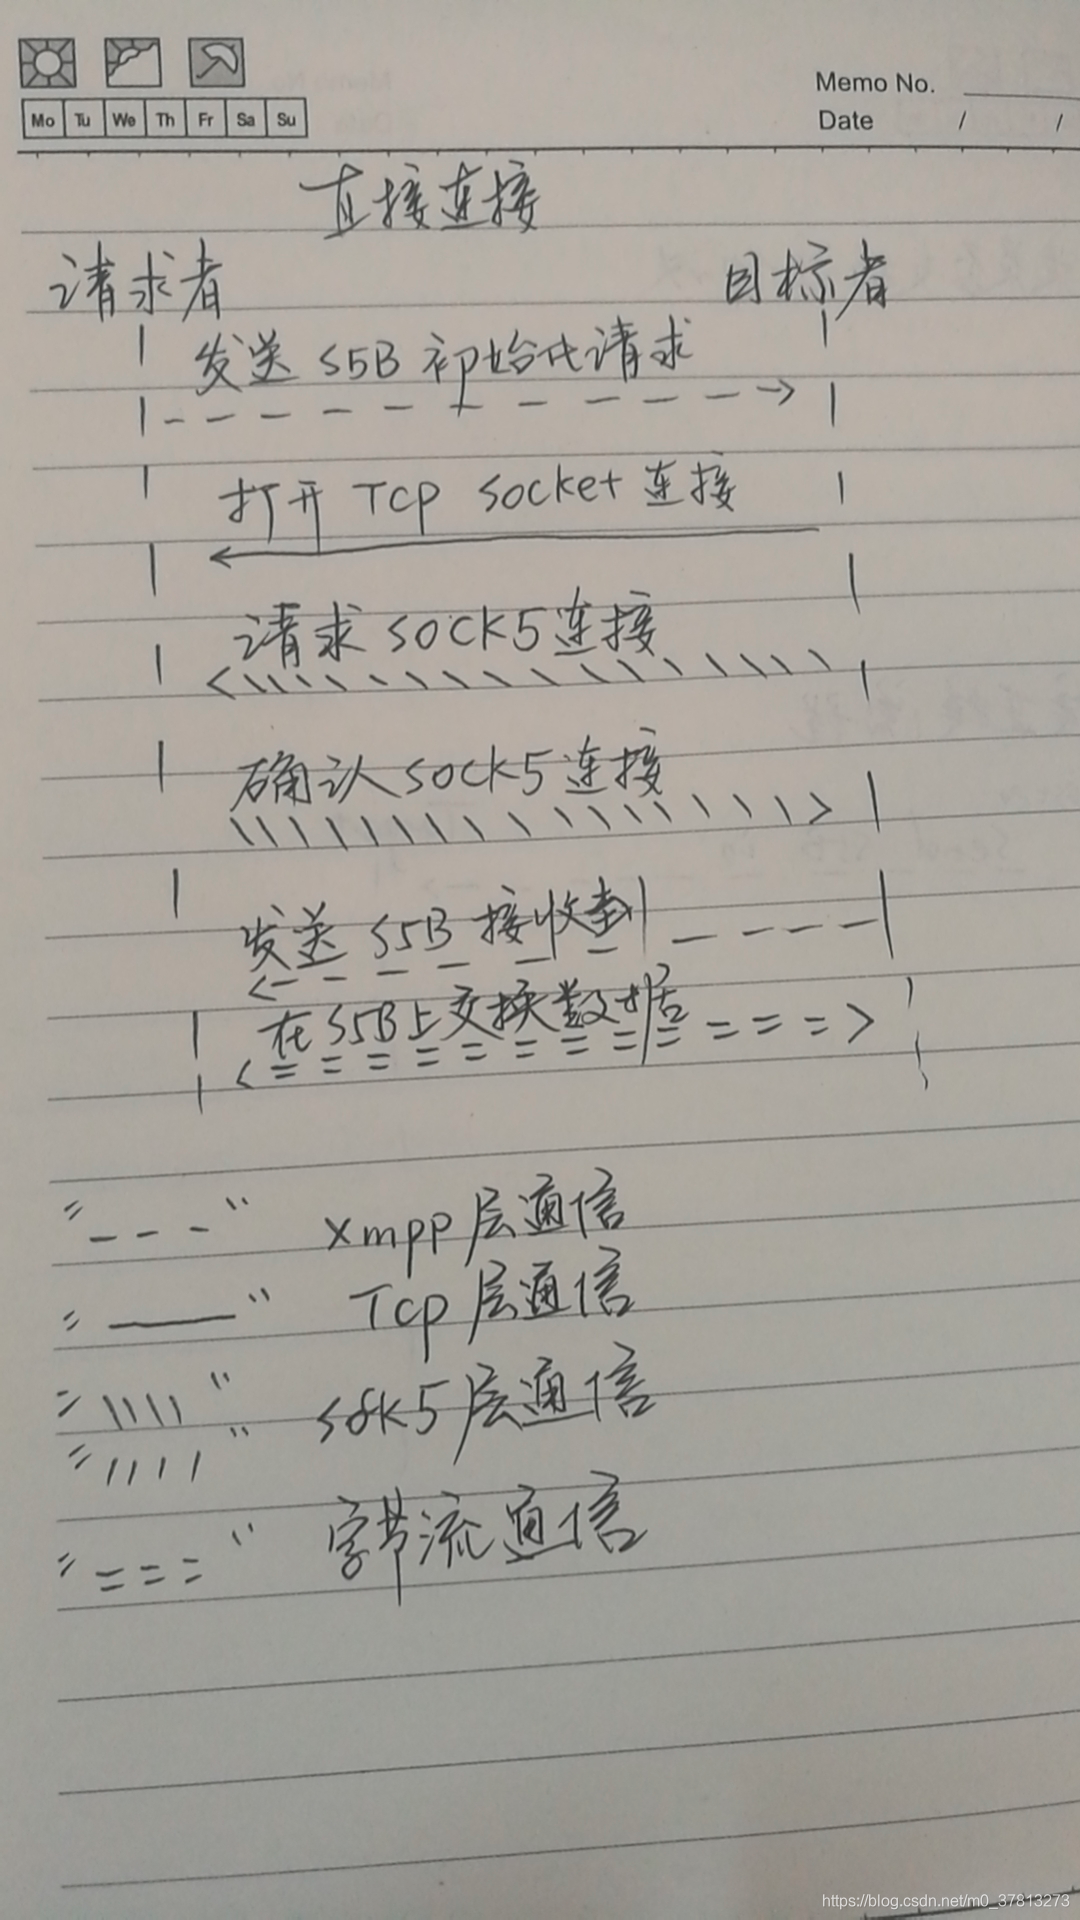 Mo Tu We Th Fr Sa Su
Memo No.
Date / /
直接连接
请求者 目标者
发送 S5B 初始化请求
打开 Tcp Socket 连接
请求 SOCK5连接
确认 SOCK5 连接
发送 S5B 接收到
在 S5B上交换数据
" - - - " xmpp 层通信
" — " Tcp 层通信
" \\\\ " sock5层通信
" //// "
" = = = " 字节流通信
https://blog.csdn.net/m0_37813273